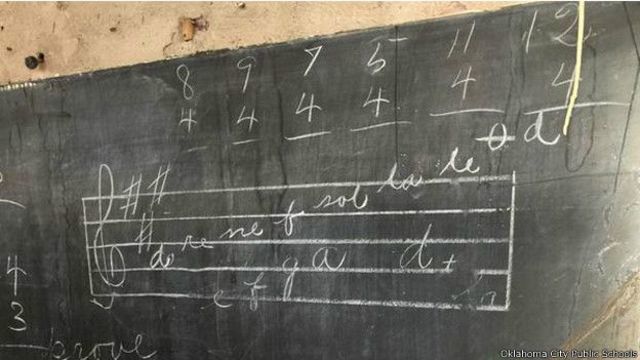 8 9 7 5 11 12
4 4 4 4 4 4
d
# #
#
d re me f sol la te
4
3
e f g a d
prove
Oklahoma City Public Schools